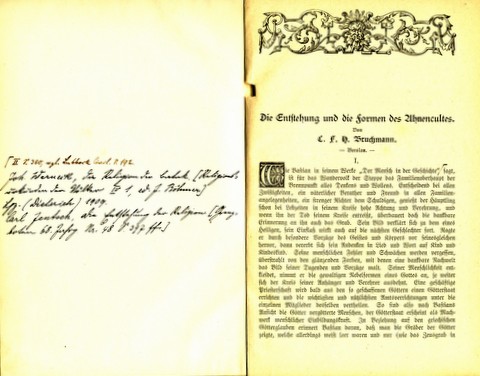 Joh. Warneck, die Religion der Batak (Religions-
urkunden der Völker IV 1, ed. J. Böhmer)
Lpz. (Dieterich) 1909.
Carl Jentsch, die Entstehung der Religion (Grenz-
boten 68. Jahrg. Nr. 48
Die Entstehung und die Formen des Ahnencultes.
Von
C. F. H. Bruchmann.
— Breslau. —
I.
Wie Bastian in seinem Werke „Der Mensch in der Geschichte“ sagt,
ist für das Wandervolk der Steppe das Familienoberhaupt der
Brennpunkt alles Denkens und Wollens. Entscheidend bei allen
Zwistigkeiten, ein väterlicher Berather und Freund in allen Familien-
angelegenheiten, ein strenger Richter dem Schuldigen, genießt der Hausvater
schon bei Lebzeiten in seinem Kreise die größte Verehrung, und
wenn ihn der Tod seinem Kreise entreißt, überdauert doch die dankbare
Erinnerung an ihn auch das Grab. Sein Bild verklärt sich zu dem eines
Heiligen, sein Einfluß wirkt auch auf die nächsten Geschlechter fort. Ragte
er durch besondere Vorzüge des Geistes und Körpers vor seinesgleichen
hervor, dann vererbt sich sein Andenken in Lied und Wort auf Kind und
Kindeskind. Seine menschlichen Fehler und Schwächen werden vergessen,
überstrahlt von den glänzenden Farben, mit denen eine dankbare Nachwelt
das Bild seiner Tugenden und Vorzüge malt. Seiner Menschlichkeit ent-
kleidet, nimmt er die gewaltigen Nebelformen eines Gottes an, je weiter
sich der Kreis seiner Anhänger und Verehrer ausdehnt. Eine geschäftige
Priesterschaft wird bald aus den so geschaffenen Göttern einen Götterstaat
errichten und die wichtigsten und nützlichsten Amtsverrichtungen unter die
einzelnen Mitglieder desselben vertheilen. So sind also nach Bastians
Ansicht die Götter vergötterte Menschen, der Götterstaat erscheint als Mach-
werk menschlicher Einbildungskraft. In Beziehung auf griechischen
Götterglauben erinnert Bastian daran, daß man die Gräber der Götter
zeigte, welche allerdings meist leer waren und nur (wie das Zeusgrab in